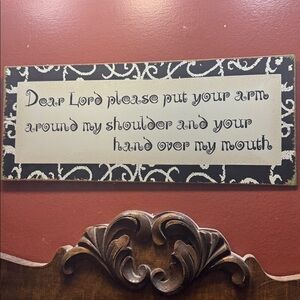 Dear Lord please put your arm
around my shoulder and your
hand over my mouth